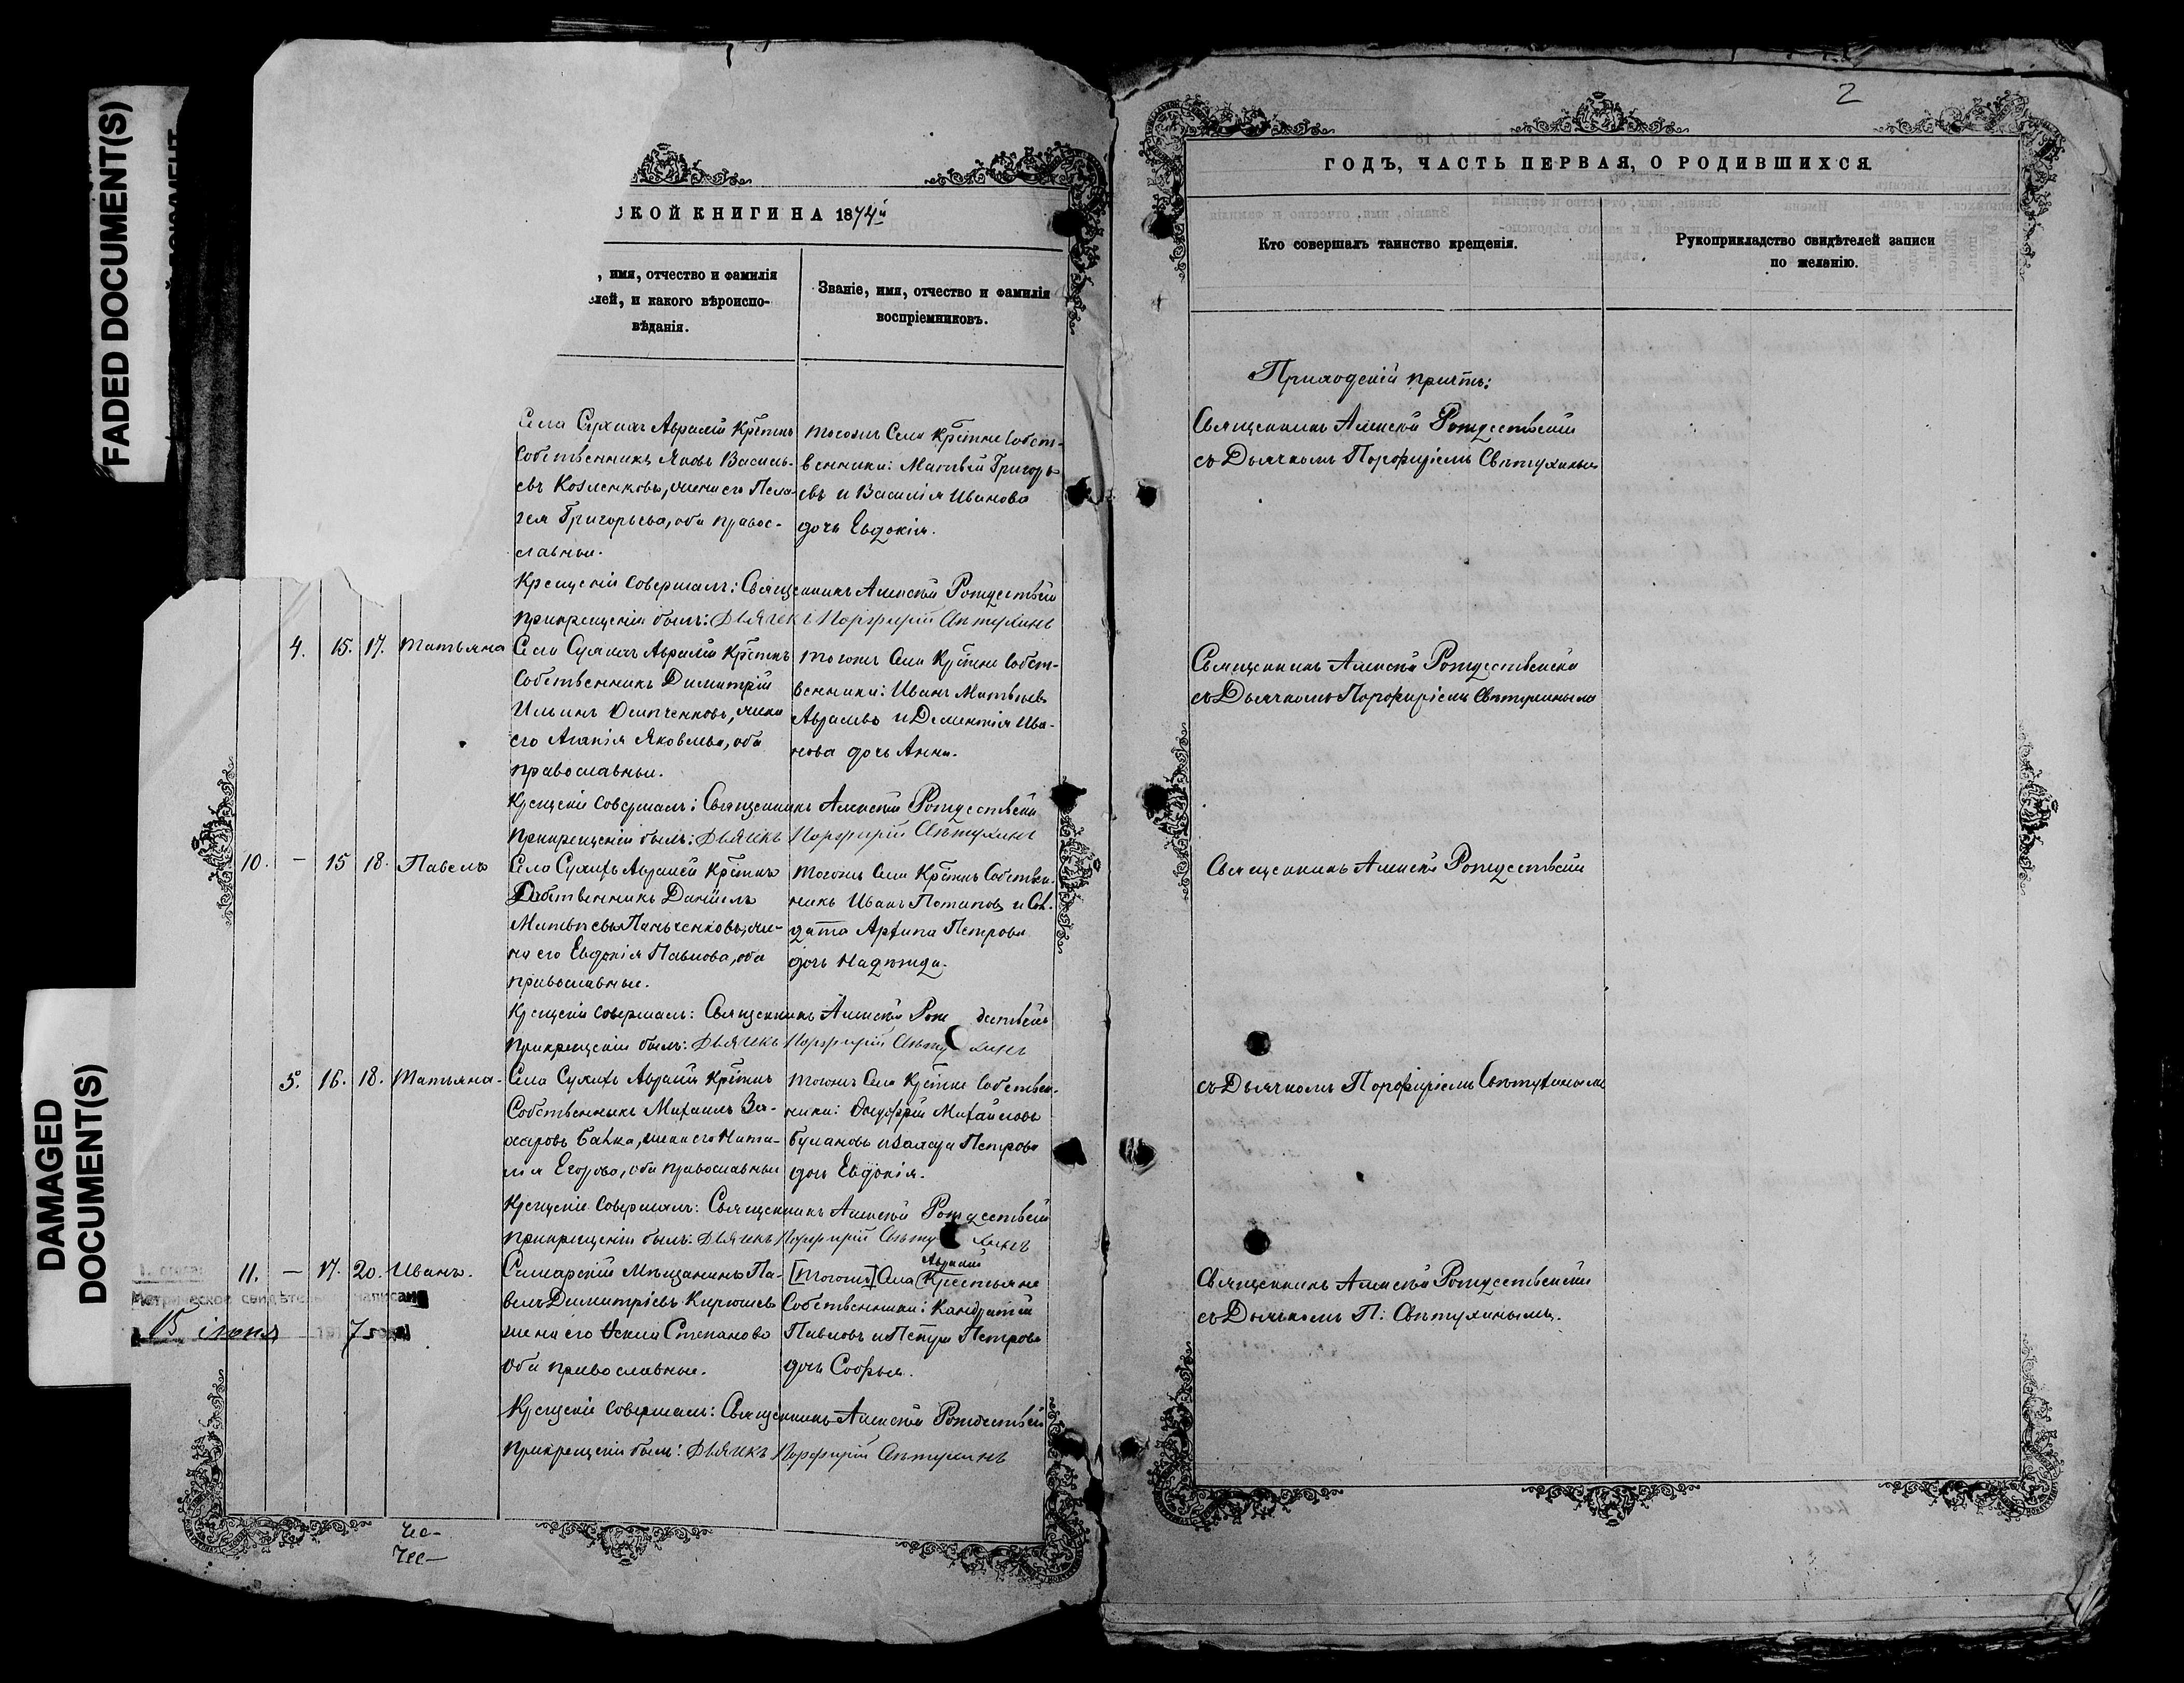 FADED DOCUMENT(S)
DAMAGED
DOCUMENT(S)
СКОЙ КНИГИ НА 1874й
, имя, отчество и фамилія
лей, и какого вѣроиспо-
вѣданія.
Званіе, имя, отчество и фамилія
воспріемниковъ.
Села Авралей Крѣстнъ
Собственникъ Яковъ Василь-
евъ Козленковъ, жена его Пела-
гея Григорьева, оба правос-
славные.
тогожъ Села Крѣстне Собст-
венники: Матвѣй Григорь-
евъ и Василія Иванова
дочь Евдокія.
Крещеніе Совершалъ: Священникъ Алексѣй Рождествен
при крещеніи былъ: Дьячекъ Порфирій Свѣтухинъ
4. 15. 17. Татьяна
Села Авралей Крѣстнъ
Собственникъ Димитрій
Ильинъ Осипенковъ, жена
его Агапія Яковлева, оба
православные.
тогожъ Села Крѣстне Собст-
венники: Иванъ Матвѣевъ
и Дементія Ива-
нова дочь Анна.
Крещеніе Совершалъ: Священникъ Алексѣй Рождествен
при крещеніи былъ: Дьячекъ Порфирій Свѣтухинъ
10. — 15 18. Павелъ
Села Авралей Крѣстнъ
Собственникъ Даніилъ
Матвѣевъ Паньченковъ, же-
на его Евдокія Павлова, оба
православные.
тогожъ Села Крѣстнъ Собствен-
никъ Иванъ Потаповъ и Сол-
дата Архипа Петрова
дочь Надежда.
Крещеніе Совершалъ: Священникъ Алексѣй Рождествен
при крещеніи былъ: Дьячекъ Порфирій Свѣтухинъ
5. 16. 18. Татьяна.
Села Авралей Крѣстнъ
Собственникъ Михаилъ За-
харовъ жена его Ната-
лія Егорова, оба православные
тогожъ Села Крѣстне Собствен-
ники: Онуфрій Михайловъ
Булановъ и Петрова
дочь Евдокія.
Крещеніе Совершалъ: Священникъ Алексѣй Рождествен
при крещеніи былъ: Дьячекъ Порфирій Свѣтухинъ
11. — 17. 20. Иванъ.
Метрическое свидѣтельство написано
15 іюня 7 года
Самарскій Мѣщанинъ Па-
велъ Димитріевъ Кирюшевъ
жена его Степанова
оба православные.
Авралей
[тогожъ] Села Крестьяне
Собственники: Кандратій
Павловъ и Петра Петрова
дочь Софья.
Крещеніе Совершалъ: Священникъ Алексѣй Рождествен
при крещеніи былъ: Дьячекъ Порфирій Свѣтухинъ
2
ГОДЪ, ЧАСТЬ ПЕРВАЯ, О РОДИВШИХСЯ.
Кто совершалъ таинство крещенія.
Рукоприкладство свидѣтелей записи
по желанію.
Приходскій причтъ:
Священникъ Алексѣй Рождественскій
съ Дьячкомъ Порфиріемъ Свѣтухинымъ
Священникъ Алексѣй Рождественскій
съ Дьячкомъ Порфиріемъ Свѣтухинымъ
Священникъ Алексѣй Рождественскій
съ Дьячкомъ Порфиріемъ Свѣтухинымъ
Священникъ Алексѣй Рождественскій
съ Дьячкомъ П. Свѣтухинымъ.